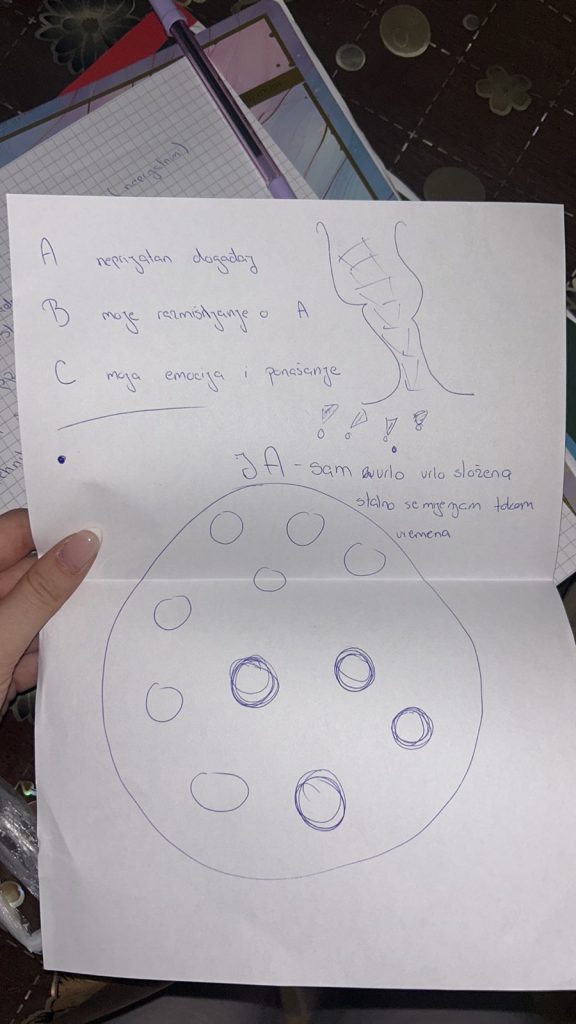 (neprijatnim)
A neprijatan događaj
B moje razmišljanje o A
C moja emocija i ponašanje
JA - sam vrlo vrlo složena
stalno se mijenjam tokom
vremena